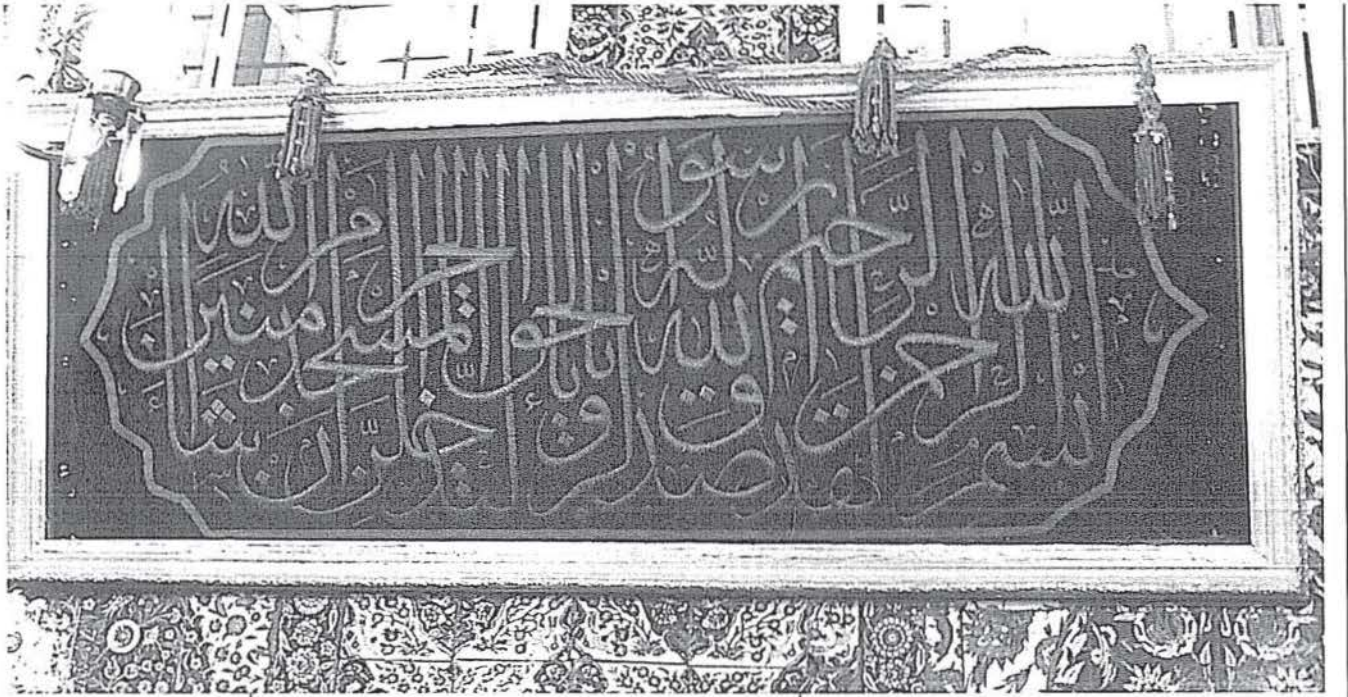 بسم الله الرحمن الرحيم
لقد صدق الله رسوله الرؤيا بالحق لتدخلن المسجد الحرام ان شاء الله آمنين